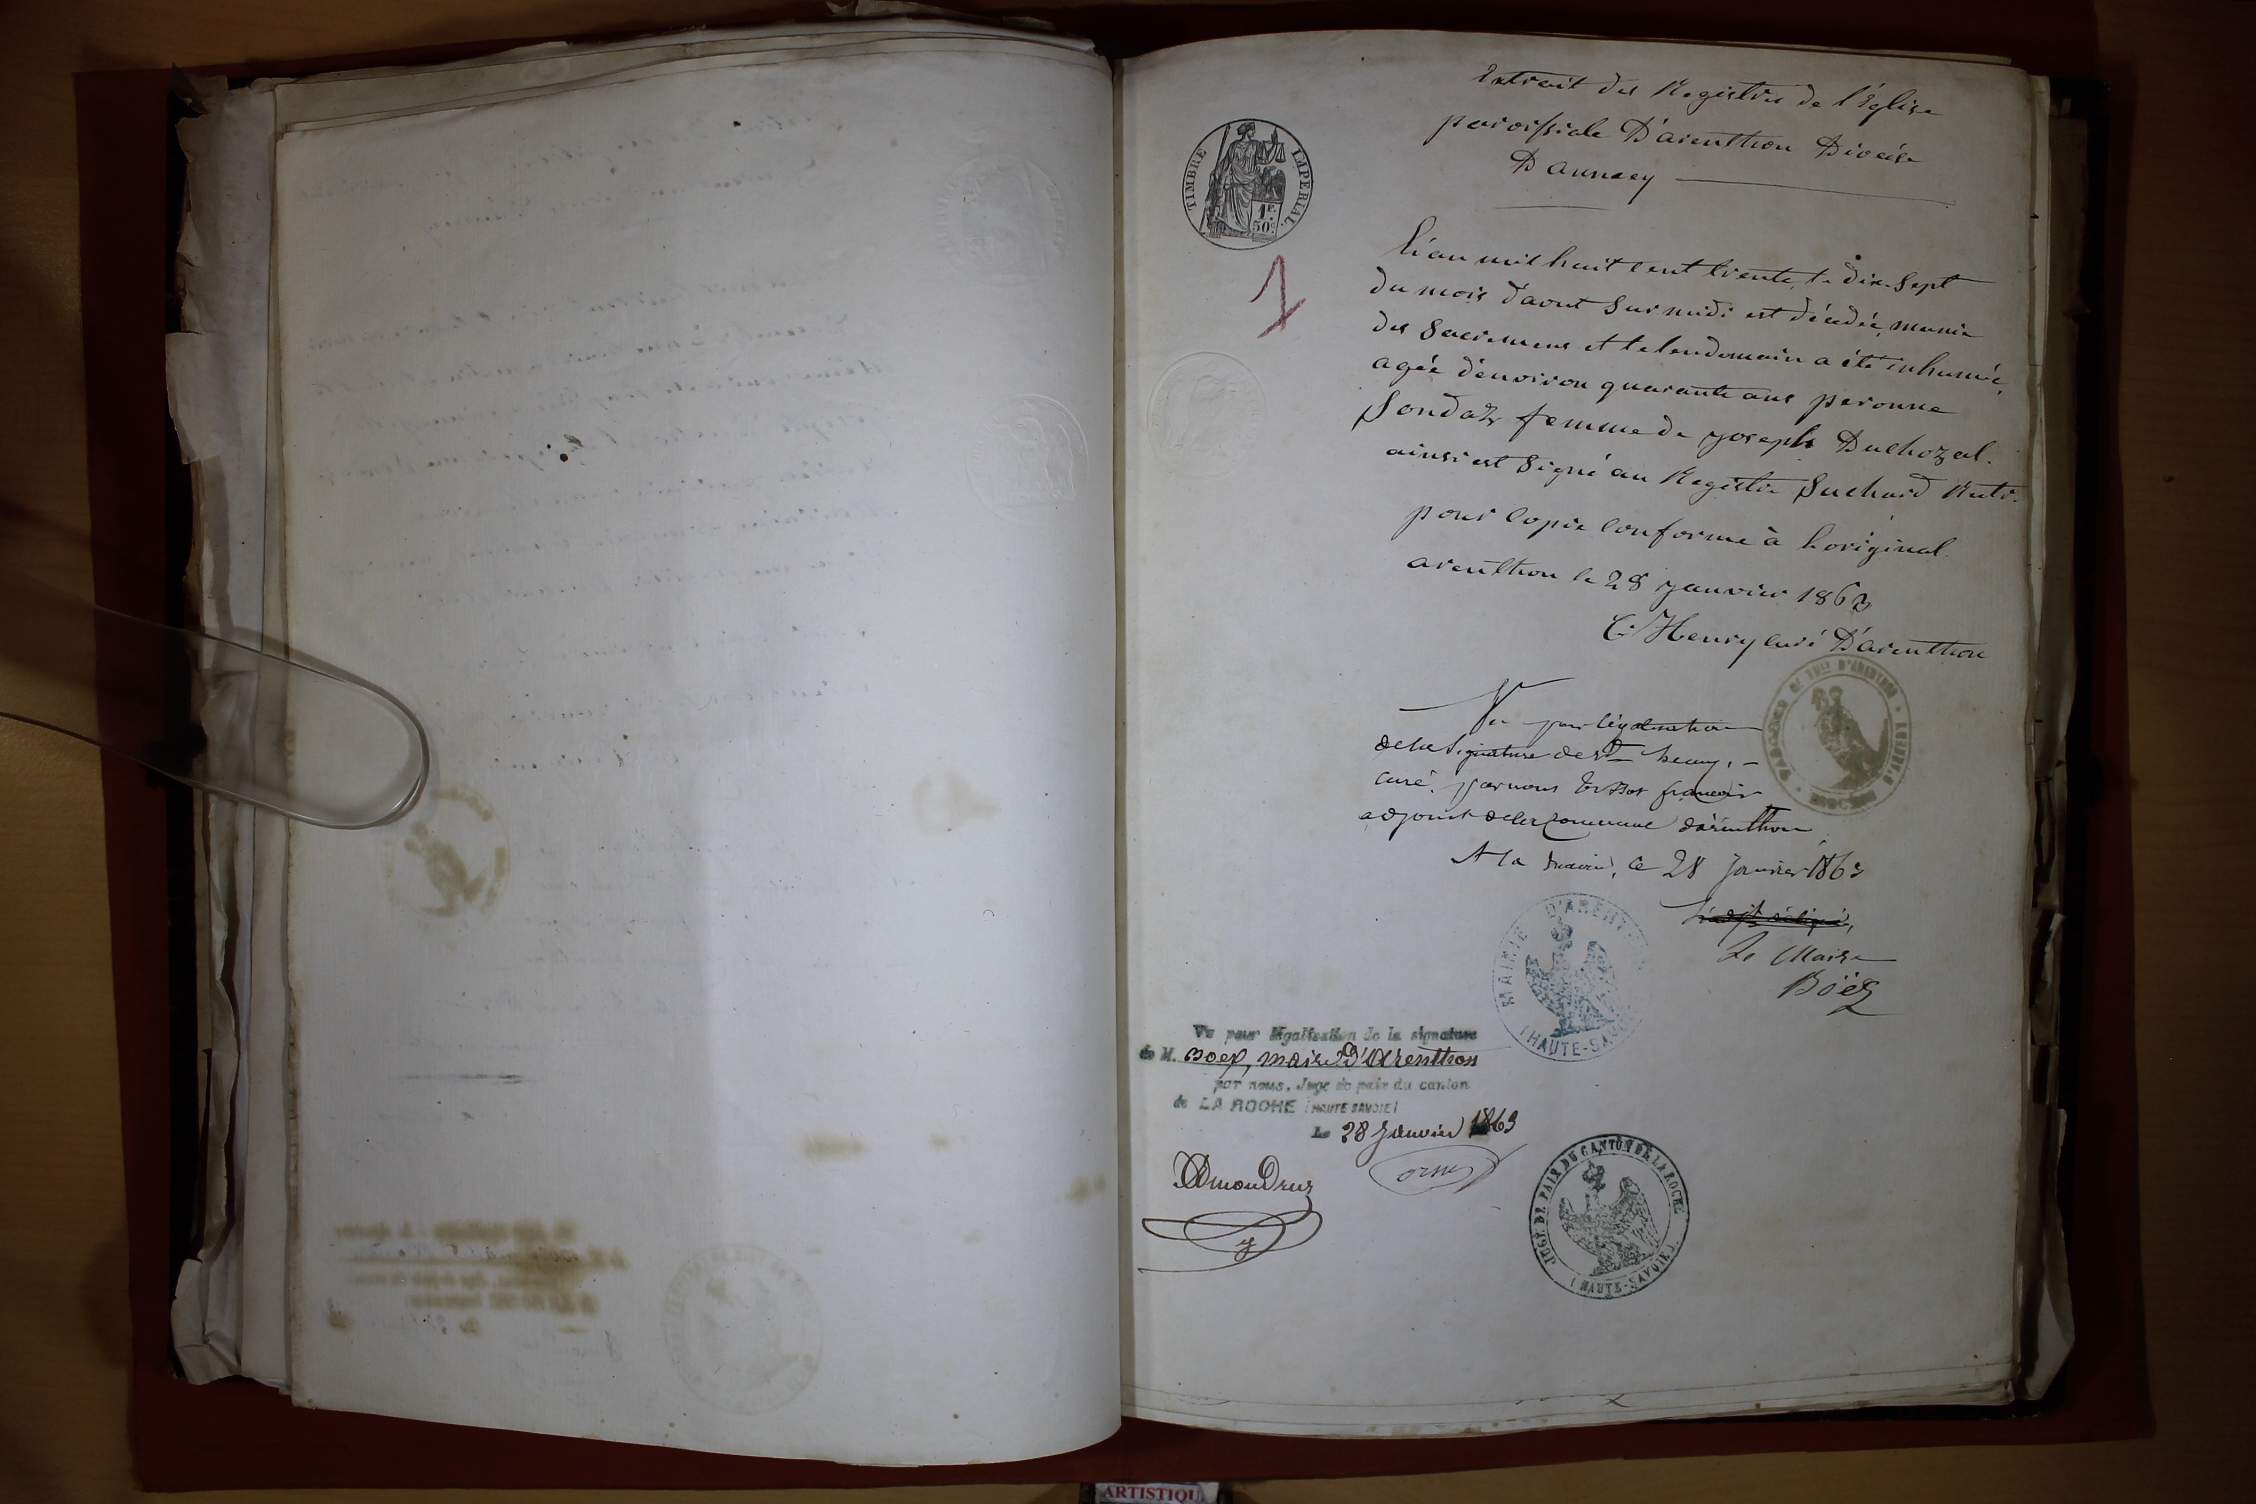 Extrait des Registres de l'Eglise
paroissiale D'arenthon Diocèse
D'annecy
TIMBRE IMPERIAL
1F. 50c.
1
L'an mil huit cent trente le dix-sept
du mois d'aout sur midi est décédée, munie
des Sacremens et le lendemain a été inhumée,
agée d'environ quarante ans peronne
Sondaz femme de joseph Duchozal.
ainsi est Signé au Registre Suchard Rect.
pour Copie Conforme à Loriginal
arenthon le 28 janvier 1863
C. Henry curé D'arenthon
Vu pour légalisation
de la Signature de Sr henry,
curé, par nous françois
adjoint de la Commune d'arenthon
A la mairie, le 28 Janvier 1863
Le Maire
Boëx
MAIRIE D'ARENTHON
(HAUTE-SAVOIE)
Vu pour légalisation de la signature
de M. Boex, maire D'Arenthon
par nous, Juge de paix du canton
de LA ROCHE (HAUTE SAVOIE)
Le 28 Janvier 1863
JUGE DE PAIX DU CANTON DE LA ROCHE
(HAUTE-SAVOIE)
ARTISTIQU